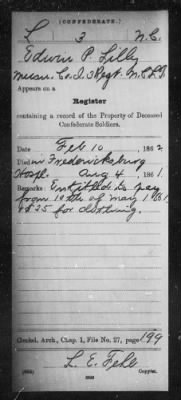 (CONFEDERATE.)
L 3 N.C.
Edwin P. Lilly
Co. D. 3 Regt. N.C.
Appears on a
Register
containing a record of the Property of Deceased
Confederate Soldiers.
Date Feb 10, 1862
Died in Fredericksburg
Hospl. Aug 4, 1861.
Remarks: Entitled to pay
from 10th of May 1861,
$25 for clothing.
Confed. Arch., Chap. 1, File No. 27, page 199
L. E.
Copyist.